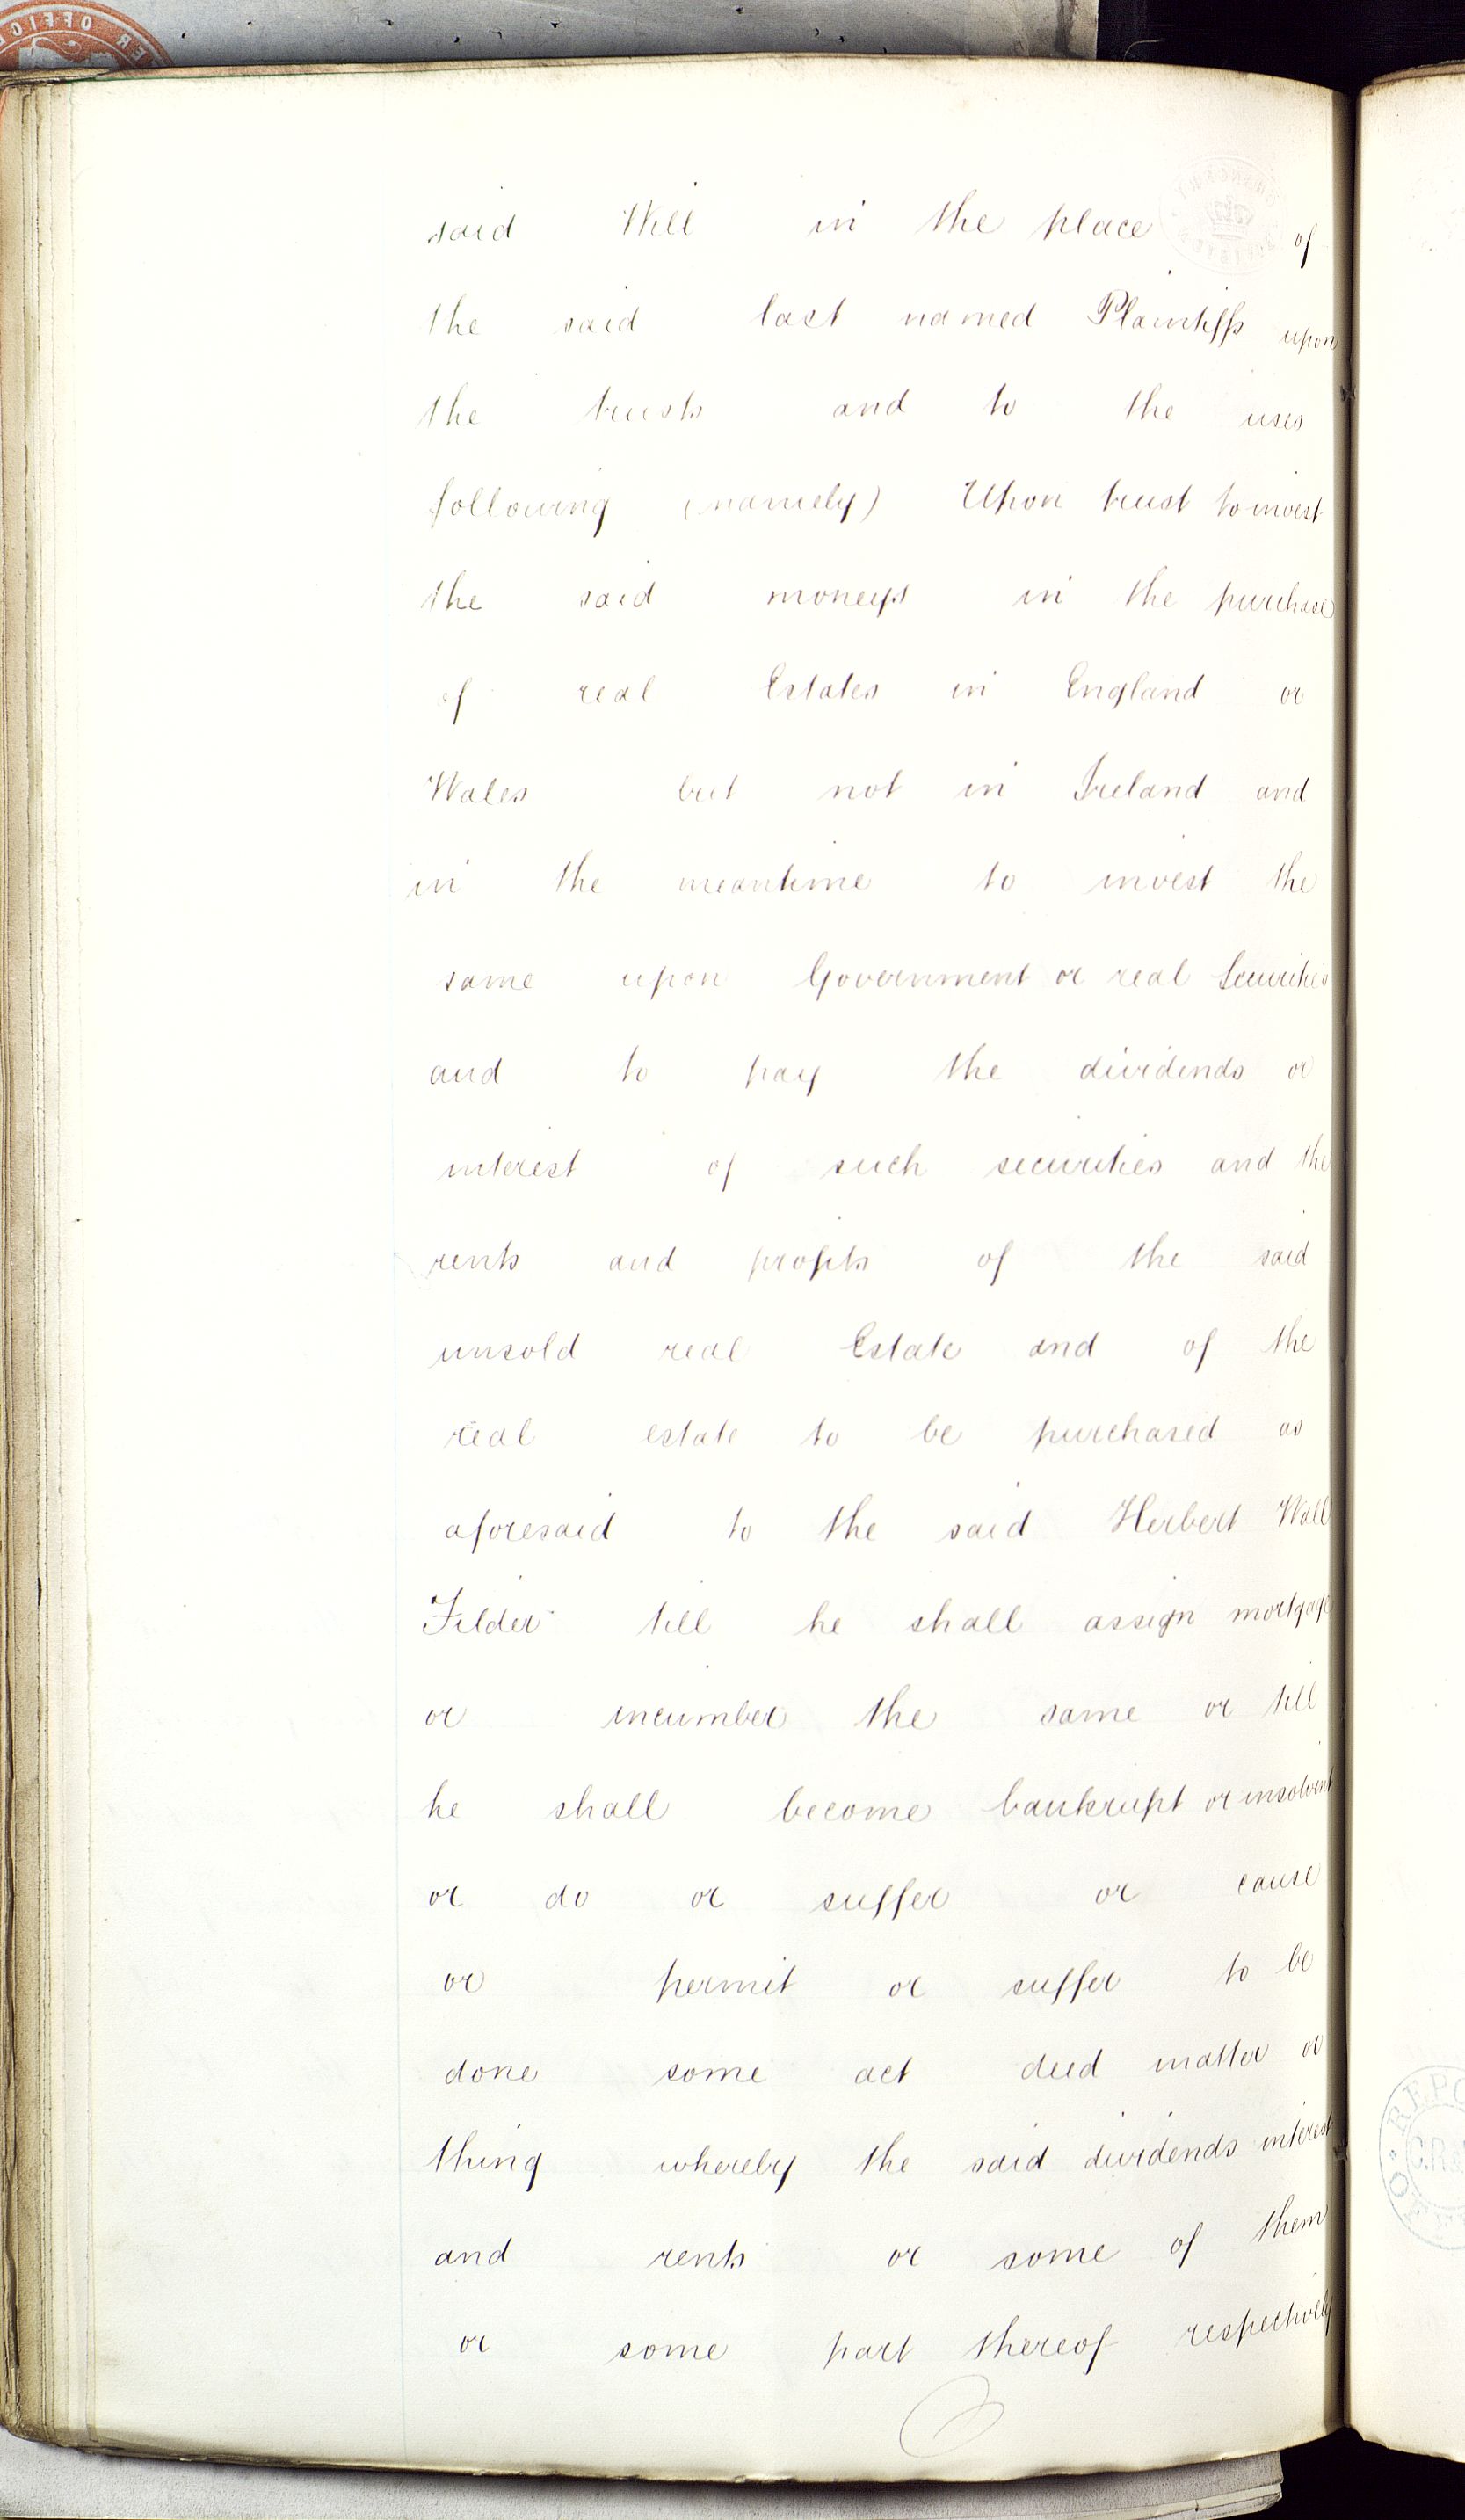 said Will in the place of
the said last named Plaintiffs upon
the trusts and to the uses
following (namely) Upon trust to invest
the said moneys in the purchase
of real Estates in England or
Wales but not in Ireland and
in the meantime to invest the
same upon Government or real Securities
and to pay the dividends or
interest of such securities and the
rents and profits of the said
unsold real Estate and of the
real estate to be purchased as
aforesaid to the said Herbert Wall
Filder till he shall assign mortgage
or incumber the same or till
he shall become bankrupt or insolvent
or do or suffer or cause
or permit or suffer to be
done some act deed matter or
thing whereby the said dividends interest
and rents or some of them
or some part thereof respectively